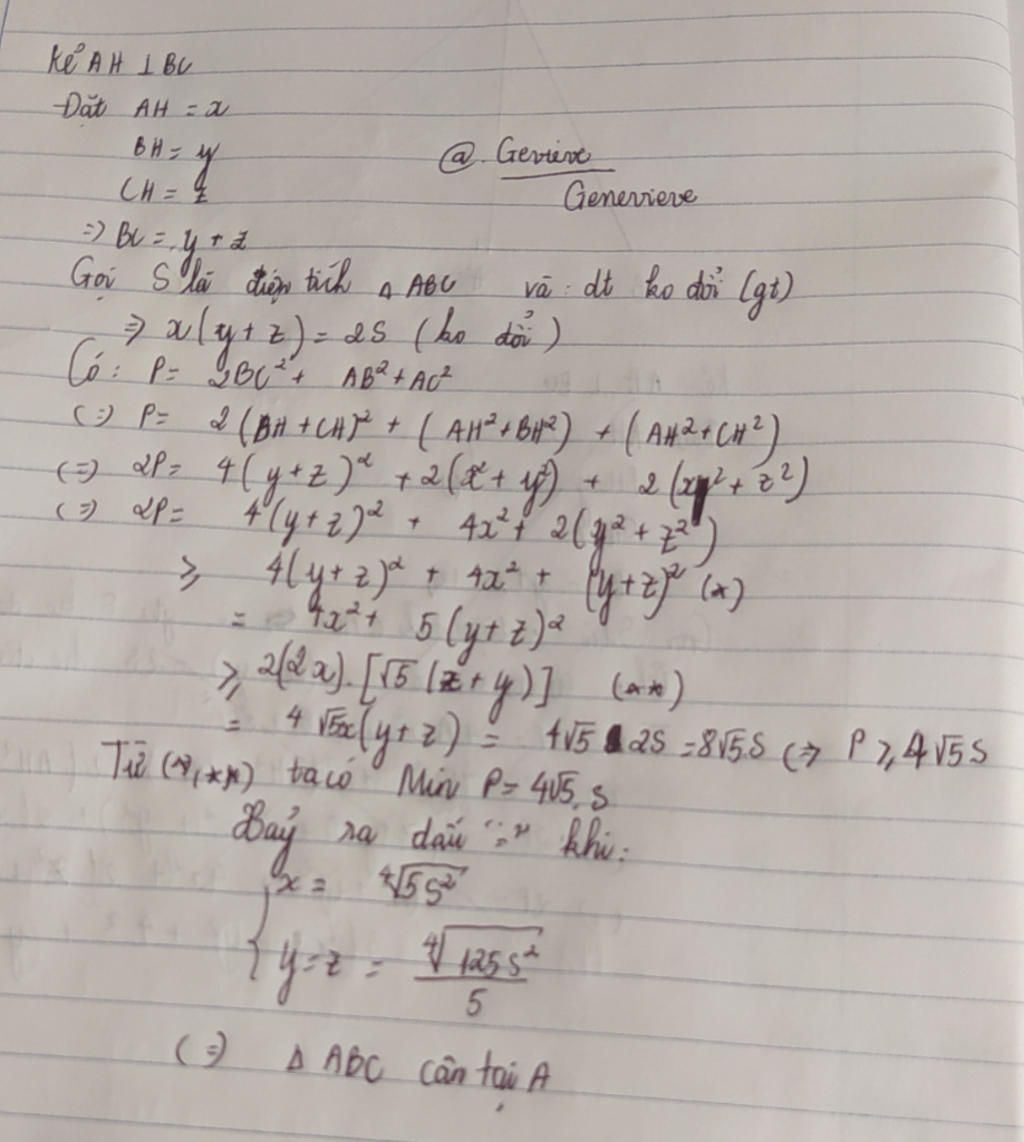 Kẻ AH ⊥ BC
Đặt AH = x
BH = y
CH = z
@. Gevieve
Genevieve
=> BC = y + z
Gọi S là diện tích △ ABC và : dt ko đổi (gt)
=> x(y + z) = 2S (ko đổi)
Có: P = 2BC² + AB² + AC²
(=) P = 2(BH + CH)² + (AH² + BH²) + (AH² + CH²)
(=) 2P = 4(y + z)² + 2(x² + y²) + 2(x² + z²)
(=) 2P = 4(y + z)² + 4x² + 2(y² + z²)
≥ 4(y + z)² + 4x² + (y + z)² (*)
= 4x² + 5(y + z)²
≥ 2(2x).[√5(z + y)] (**)
= 4√5x(y + z) = 4√5 2S = 8√5.S (=> P ≥ 4√5 S
Từ (*, **) ta có Min P = 4√5.S
Xảy ra dấu "=" khi:
{ x = ∜5S²
y = z = ∜125S² / 5
(=) △ ABC cân tại A